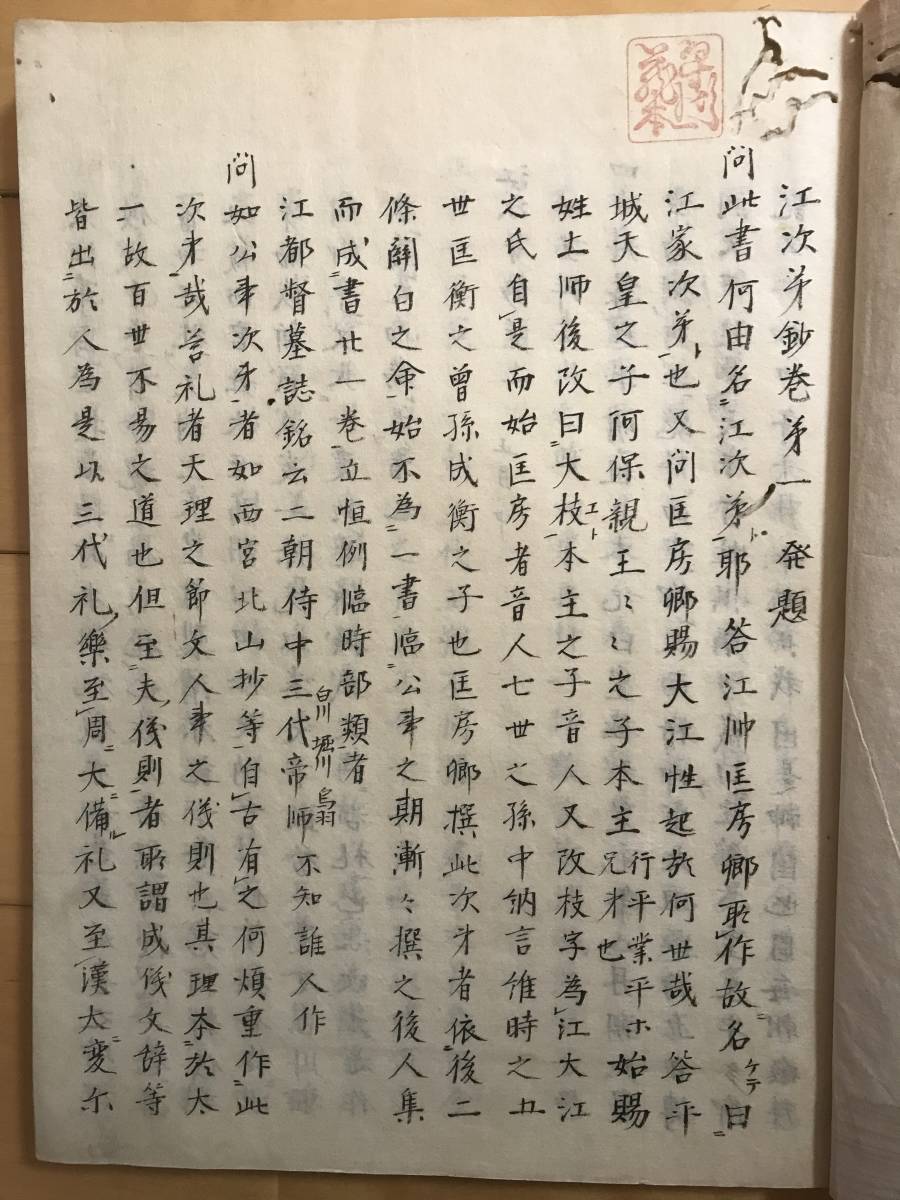 江次第鈔巻第一　発題
問此書何由名江次第ト耶答江帥匡房卿所作故名ケテ曰
江家次第ト也又問匡房卿賜大江性起於何世哉答平
城天皇之子阿保親王〻〻之子本主行平業平ホ兄才也始賜
姓土師後改曰大枝エト本主之子音人又改枝字為江大江
之氏自是而始匡房者音人七世之孫中納言惟時之五
世匡衡之曾孫成衡之子也匡房卿撰此次才者依後二
條関白之命始不為一書臨公事之期漸々撰之後人集
而成書廿一巻立恒例臨時部類者
江都督墓誌銘云二朝侍中三代帝師白川堀川鳥羽不知誰人作
問如公事次才者如西宮北山抄等自古有之何煩重作此
次才哉答礼者天理之節文人事之儀則也其理本於太
一故百世不易之道也但至夫儀則者所謂威儀文辞等
皆出於人為是以三代礼樂至周大備ル礼又至漢大変尓